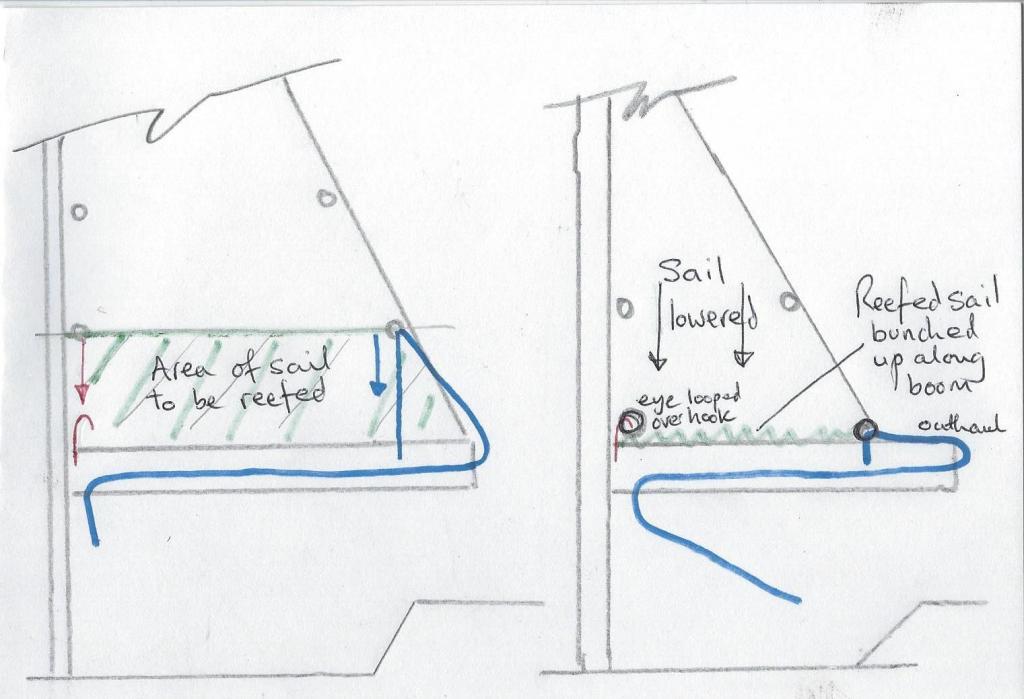 Area of sail
to be reefed
Sail
lowered
eye looped
over hook
Reefed sail
bunched
up along
boom
outhaul